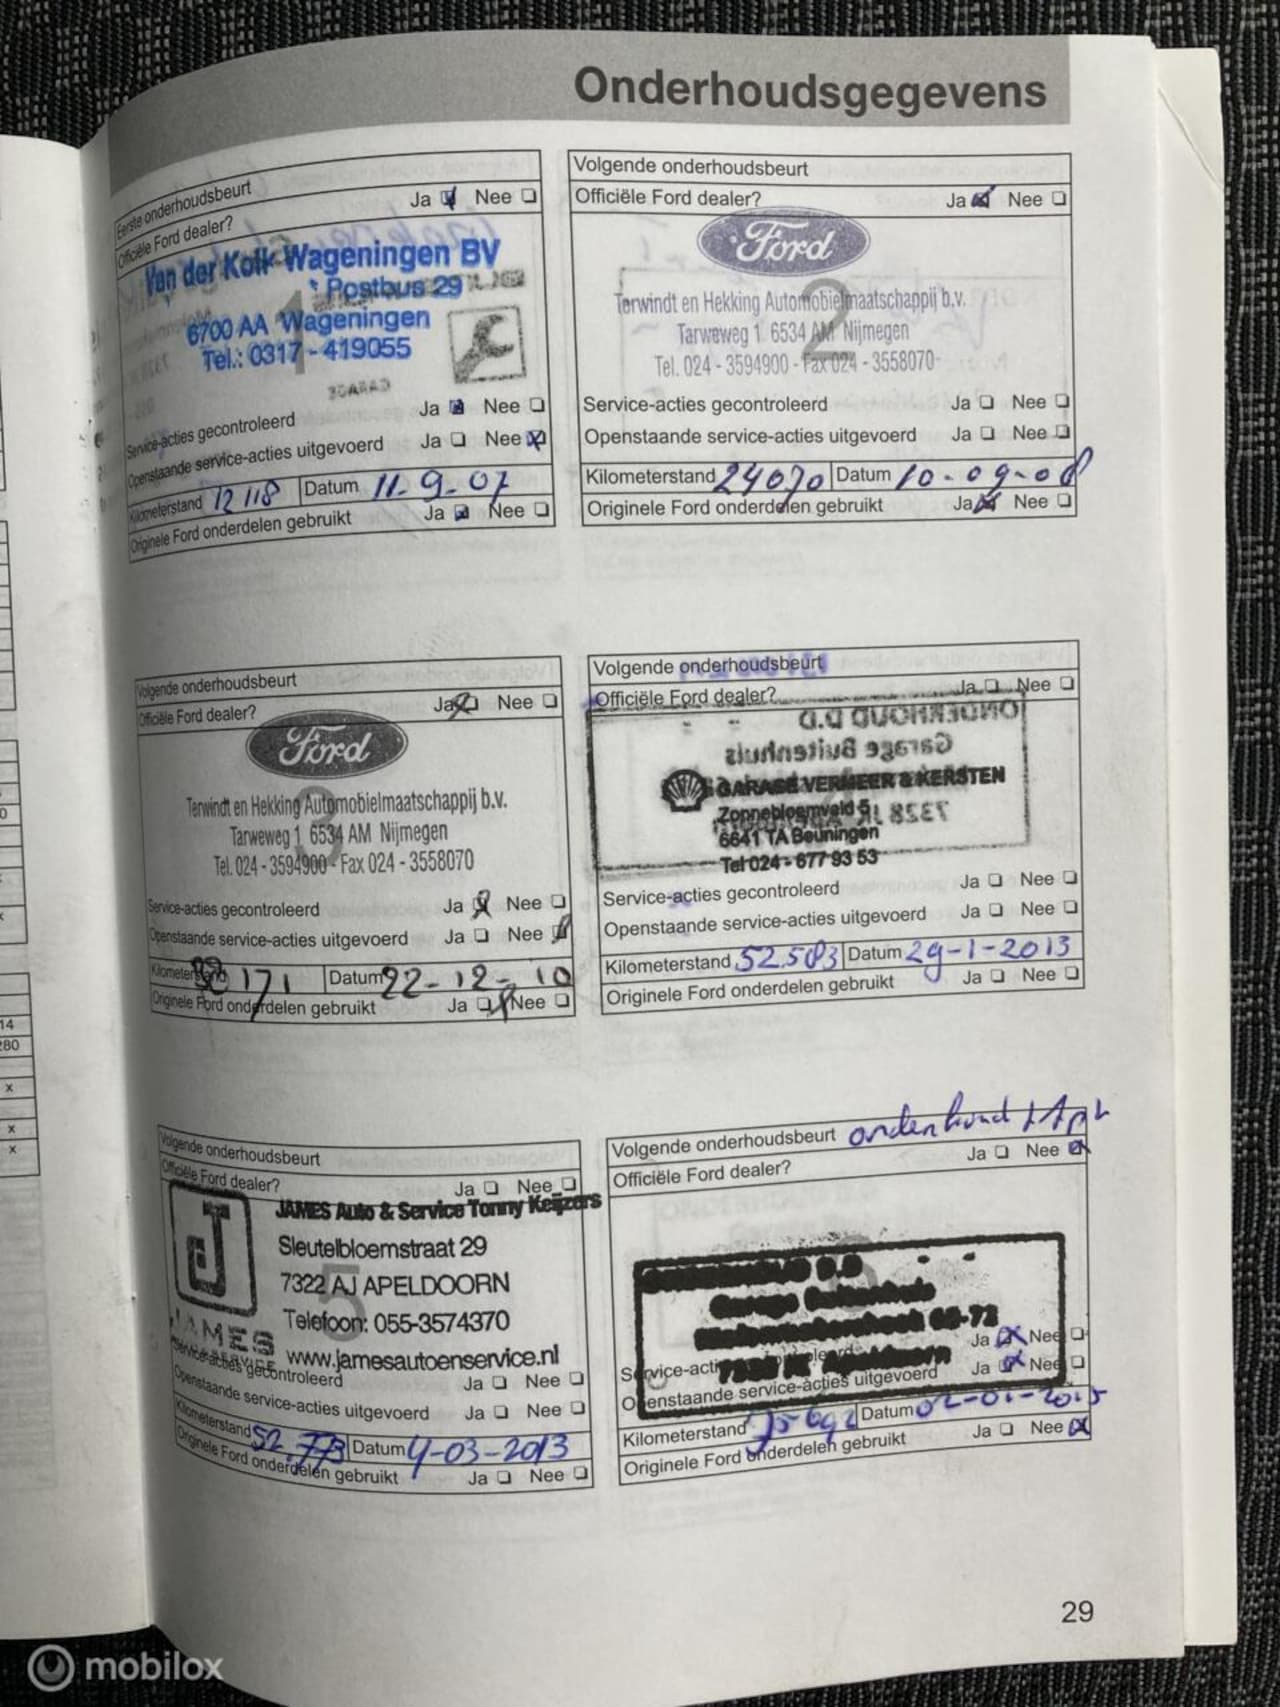 Onderhoudsgegevens
Eerste onderhoudsbeurt
Officiële Ford dealer? Ja Nee
Van der Kolk Wageningen BV
Postbus 29
6700 AA Wageningen
Tel.: 0317 - 419055
1
Service-acties gecontroleerd Ja Nee
Openstaande service-acties uitgevoerd Ja Nee
Kilometerstand 12118 Datum 11-9-07
Originele Ford onderdelen gebruikt Ja Nee
Volgende onderhoudsbeurt
Officiële Ford dealer? Ja Nee
Ford
2
Terwindt en Hekking Automobielmaatschappij b.v.
Tarweweg 1 6534 AM Nijmegen
Tel. 024 - 3594900 - Fax 024 - 3558070
Service-acties gecontroleerd Ja Nee
Openstaande service-acties uitgevoerd Ja Nee
Kilometerstand 24070 Datum 10-09-08
Originele Ford onderdelen gebruikt Ja Nee
Volgende onderhoudsbeurt
Officiële Ford dealer? Ja Nee
Ford
3
Terwindt en Hekking Automobielmaatschappij b.v.
Tarweweg 1 6534 AM Nijmegen
Tel. 024 - 3594900 - Fax 024 - 3558070
Service-acties gecontroleerd Ja Nee
Openstaande service-acties uitgevoerd Ja Nee
Kilometerstand 171 Datum 22-12-10
Originele Ford onderdelen gebruikt Ja Nee
Volgende onderhoudsbeurt
Officiële Ford dealer? Ja Nee
ONDERHOUD D.D
Garage Buitenhuis
GARAGE VERMEER & KERSTEN
Zonnebloemveld 5
6641 TA Beuningen
Tel 024 - 677 93 53
Service-acties gecontroleerd Ja Nee
Openstaande service-acties uitgevoerd Ja Nee
Kilometerstand 52.583 Datum 29-1-2013
Originele Ford onderdelen gebruikt Ja Nee
Volgende onderhoudsbeurt
Officiële Ford dealer? Ja Nee
JAMES Auto & Service Tonny Keijzers
Sleutelbloemstraat 29
7322 AJ APELDOORN
5
Telefoon: 055-3574370
JAMES
www.jamesautoenservice.nl
Service-acties gecontroleerd Ja Nee
Openstaande service-acties uitgevoerd Ja Nee
Kilometerstand 52.773 Datum 4-03-2013
Originele Ford onderdelen gebruikt Ja Nee
Volgende onderhoudsbeurt onderhoud +
Officiële Ford dealer? Ja Nee
D.D
Garage Buitenhuis
66-72
Apeldoorn
Ja Nee
Openstaande service-acties uitgevoerd Ja Nee
Kilometerstand Datum 02-01-2015
Originele Ford onderdelen gebruikt Ja Nee
29
14
280
x
x
x
mobilox